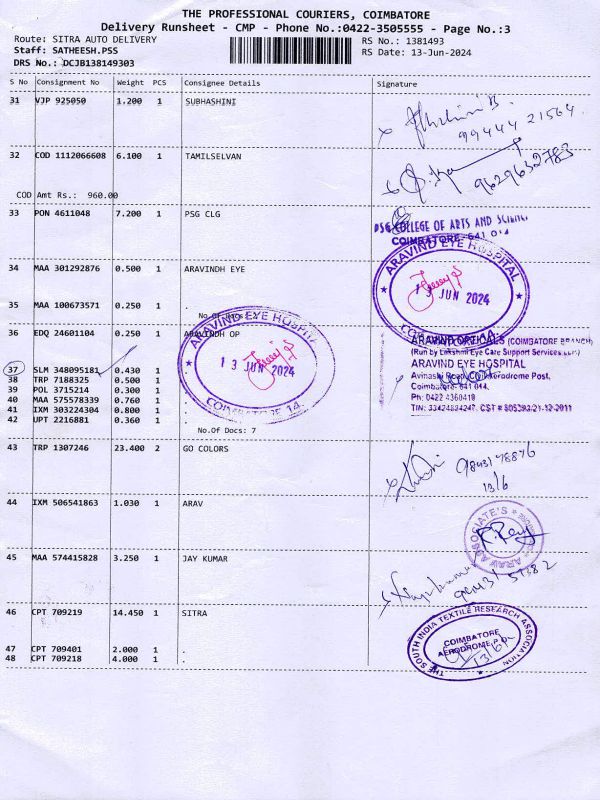 THE PROFESSIONAL COURIERS, COIMBATORE
Delivery Runsheet - CMP - Phone No.:0422-3505555 - Page No.:3
Route: SITRA AUTO DELIVERY
RS No.: 1381493
Staff: SATHEESH.PSS
RS Date: 13-Jun-2024
DRS No.: DCJB138149303
S No Consignment No Weight PCS Consignee Details Signature
31 VJP 925050 1.200 1 SUBHASHINI
99444 21564
32 COD 1112066608 6.100 1 TAMILSELVAN
9629632783
COD Amt Rs.: 960.00
33 PON 4611048 7.200 1 PSG CLG
PSG COLLEGE OF ARTS AND SCIENCE
COIMBATORE-641 014
34 MAA 301292876 0.500 1 ARAVINDH EYE
ARAVIND EYE HOSPITAL
13 JUN 2024
35 MAA 100673571 0.250 1 .
No.Of Docs: 2
36 EDQ 24601104 0.250 1 ARAVINDH OP
ARAVIND EYE HOSPITAL
13 JUN 2024
COIMBATORE 14.
ARAVIND OPTICALS (COIMBATORE BRANCH)
(Run by Lakshmi Eye Care Support Services
ARAVIND EYE HOSPITAL
Avinashi Road, Civil Aerodrome Post,
Coimbatore-641 044.
Ph: 0422 4360419
37 SLM 348095181 0.430 1 .
38 TRP 7188325 0.500 1 .
39 POL 3715214 0.300 1 .
40 MAA 575578339 0.760 1 .
41 IXM 303224304 0.800 1 .
42 UPT 2216881 0.360 1 .
No.Of Docs: 7
43 TRP 1307246 23.400 2 GO COLORS
9843178876
13/6
44 IXM 506541863 1.030 1 ARAV
ARAV ASSOCIATE'S
45 MAA 574415828 3.250 1 JAY KUMAR
46 CPT 709219 14.450 1 SITRA
THE SOUTH INDIA TEXTILE RESEARCH ASSOCIATION
COIMBATORE
AERODROME P.O
47 CPT 709401 2.000 1 .
48 CPT 709218 4.000 1 .